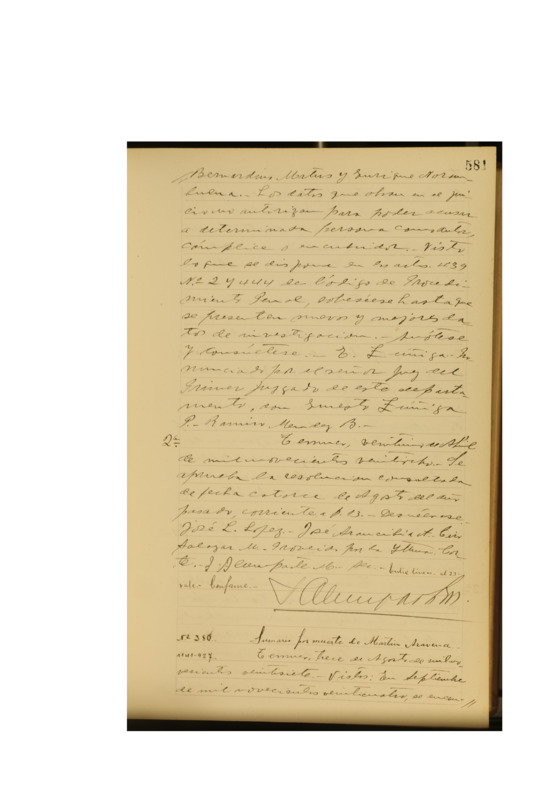 581
Bernardino Matus y Enrique Noram-
buena.- Los datos que obran en el jui
cio no autorizan para poder acusar
a determinada persona como autor,
cómplice o encubridor.- Visto
lo que se dispone en los arts. 439
Nº 2 y 444 del Código de Procedi-
miento Penal, sobreséese hasta que
se presenten nuevos y mejores da-
tos de investigacion.- Anótese
y consúltese.- E. Zúñiga. Pro
nunciado por el señor Juez del
Primer juzgado de este departa
mento, don Ernesto Zúñiga
P.- Ramiro Mendez B.-
2ª
Temuco, veintiuno de Abril
de mil novecientos veintiocho.- Se
aprueba la resolucion consultada
de fecha catorce de Agosto del año
pasado, corriente a f. 13.- Devuélvase.
José L. Lopez.- José Arancibia A. Ciro
Salazar M. Proveido por la Iltma. Cor
te.- J. Dcampte M.
vale.- Conforme.-
Nº 330. Sumario por muerte de Martin Aravena.
Temuco, trece de Agosto de mil no
vecientos veintisiete.- Vistos: En Septiembre
de mil novecientos veinticuatro, se